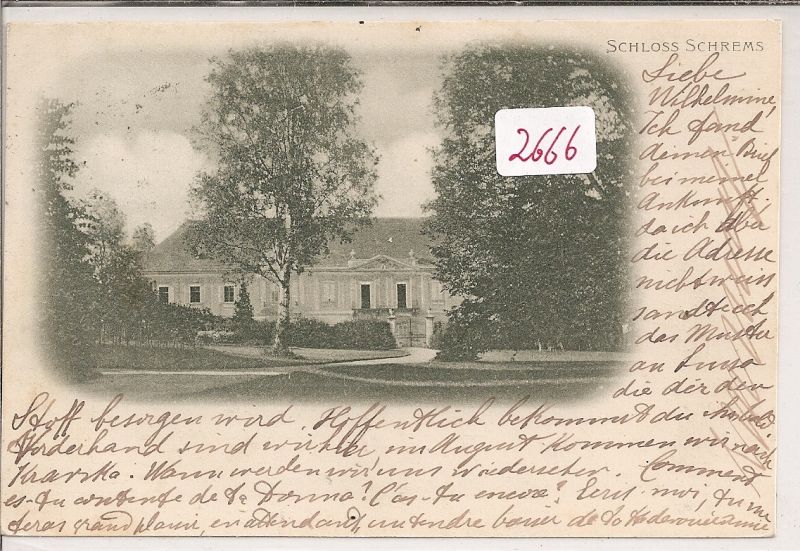 SCHLOSS SCHREMS
2666
Liebe
Wilhelmine,
Ich fand
deinen Brief
bei meiner
Ankunft.
da ich aber
die Adresse
nicht weiss
sandte ich
das Muster
an
die dir den
Stoff besorgen wird. Hoffentlich bekommst du
Vorderhand sind wir hier, im August kommen wir nach
Wann werden wir uns wiedersehen. Comment
es-tu contente de ta Donna? L'as-tu encore? Ecris-moi, tu me
feras grand plaisir, en attendant, un tendre baiser de ta